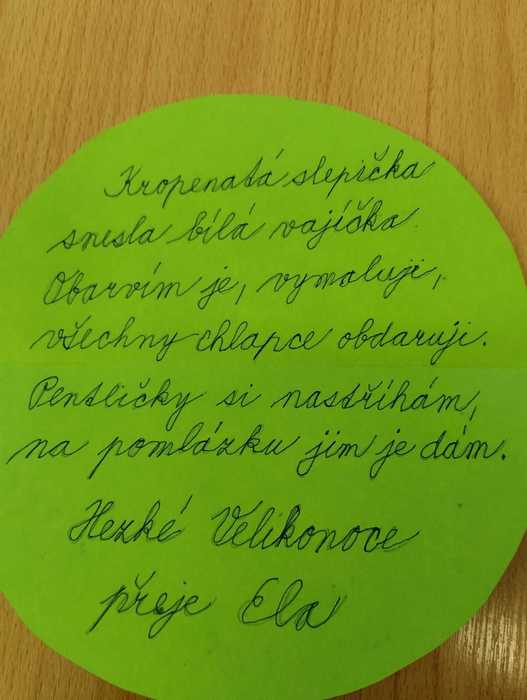 Kropenatá slepička
snesla bílá vajíčka.
Obarvím je, vymaluji,
všechny chlapce obdaruji.
Pentličky si nastříhám,
na pomlázku jim je dám.
Hezké Velikonoce
přeje Ela